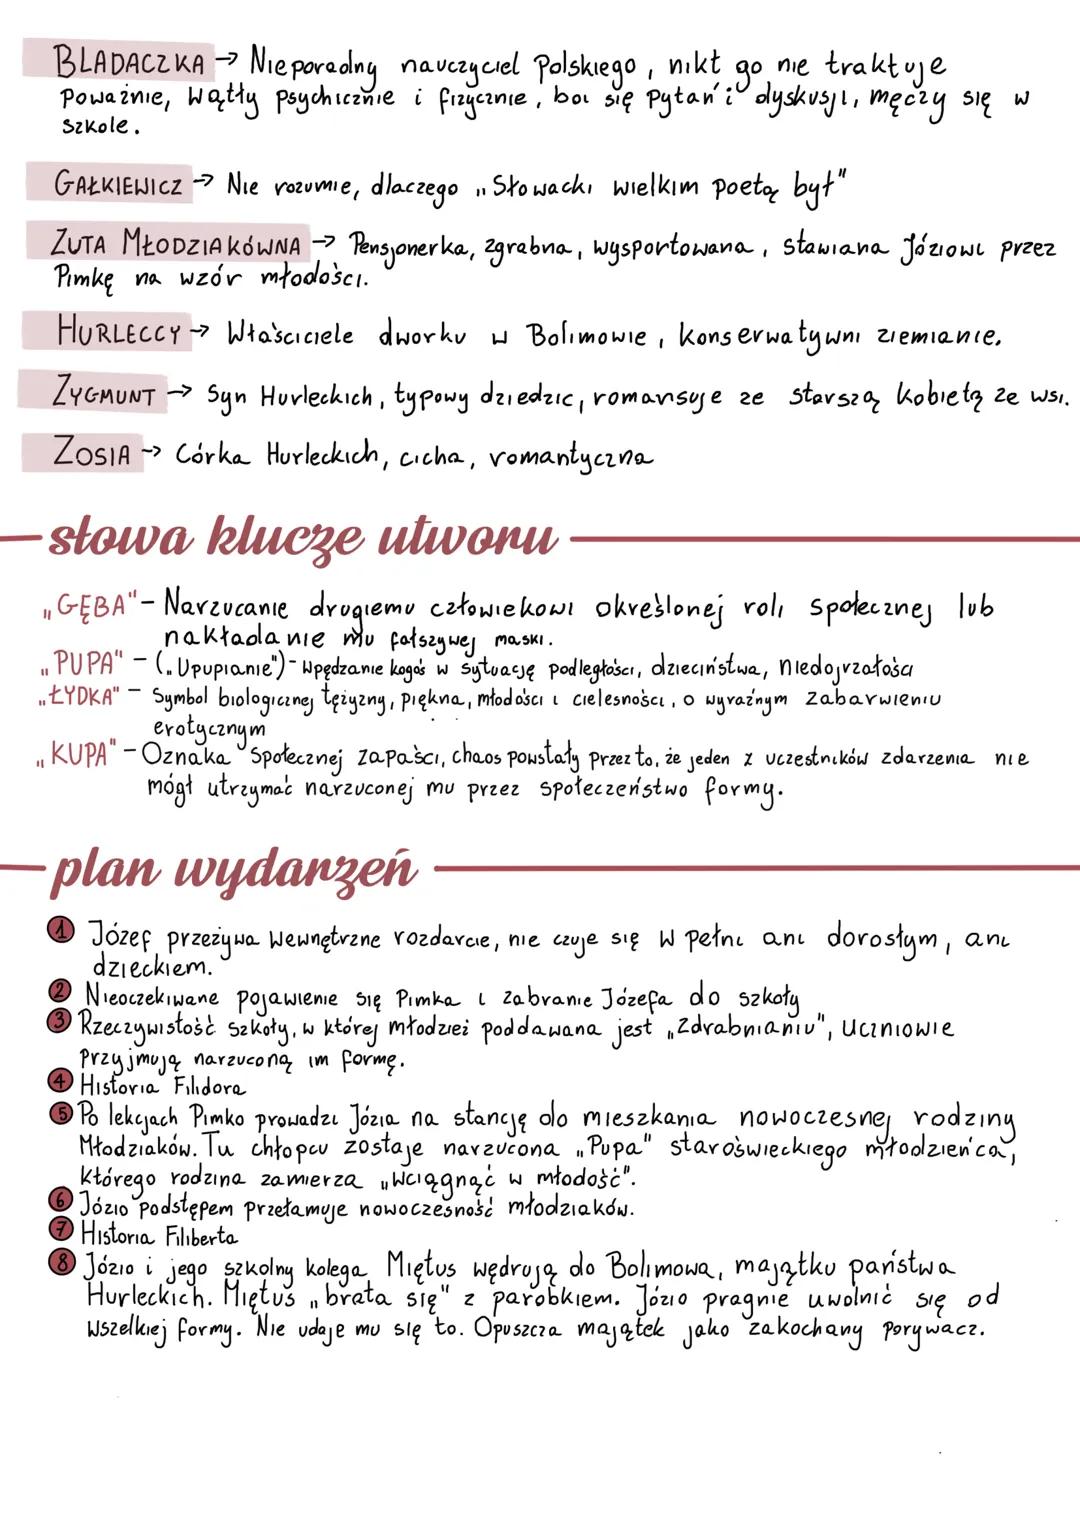 BLADACZKA → Nieporadny nauczyciel Polskiego, nikt go nie traktuje
poważnie, Wątły psychicznie i fizycznie, boi się pytań i dyskusji, męczy się w
szkole.
GAŁKIEWICZ → Nie rozumie, dlaczego „Słowacki wielkim poetą był"
ZUTA MŁODZIAKÓWNA → Pensjonerka, zgrabna, wysportowana, stawiana Józiowi przez
Pimkę na wzór młodości.
HURLECCY → Właściciele dworku w Bolimowie, konserwatywni ziemianie.
ZYGMUNT → Syn Hurleckich, typowy dziedzic, romansuje ze starszą kobietą ze wsi.
ZOSIA → Córka Hurleckich, cicha, romantyczna
słowa klucze utworu
„GĘBA" - Narzucanie drugiemu człowiekowi określonej roli społecznej lub
nakładanie mu fałszywej maski.
„PUPA" - („Upupianie") - Wpędzanie kogoś w sytuację podległości, dzieciństwa, niedojrzałości
„ŁYDKA" - Symbol biologicznej tężyzny, piękna, młodości i cielesności, o wyraźnym zabarwieniu
erotycznym
„KUPA" - Oznaka społecznej zapaści, chaos powstały przez to, że jeden z uczestników zdarzenia nie
mógł utrzymać narzuconej mu przez społeczeństwo formy.
plan wydarzeń
1 Józef przeżywa wewnętrzne rozdarcie, nie czuje się w pełni ani dorosłym, ani
dzieckiem.
2 Nieoczekiwane pojawienie się Pimka i zabranie Józefa do szkoły
3 Rzeczywistość szkoły, w której młodzież poddawana jest „Zdrabnianiu", Uczniowie
przyjmują narzuconą im formę.
4 Historia Filidora
5 Po lekcjach Pimko prowadzi Józia na stancję do mieszkania nowoczesnej rodziny
Młodziaków. Tu chłopcu zostaje narzucona „Pupa" staroświeckiego młodzieńca,
którego rodzina zamierza „wciągnąć w młodość".
6 Józio podstępem przełamuje nowoczesność młodziaków.
7 Historia Filiberta
8 Józio i jego szkolny kolega Miętus wędrują do Bolimowa, majątku państwa
Hurleckich. Miętus „brata się" z parobkiem. Józio pragnie uwolnić się od
wszelkiej formy. Nie udaje mu się to. Opuszcza majątek jako zakochany porywacz.